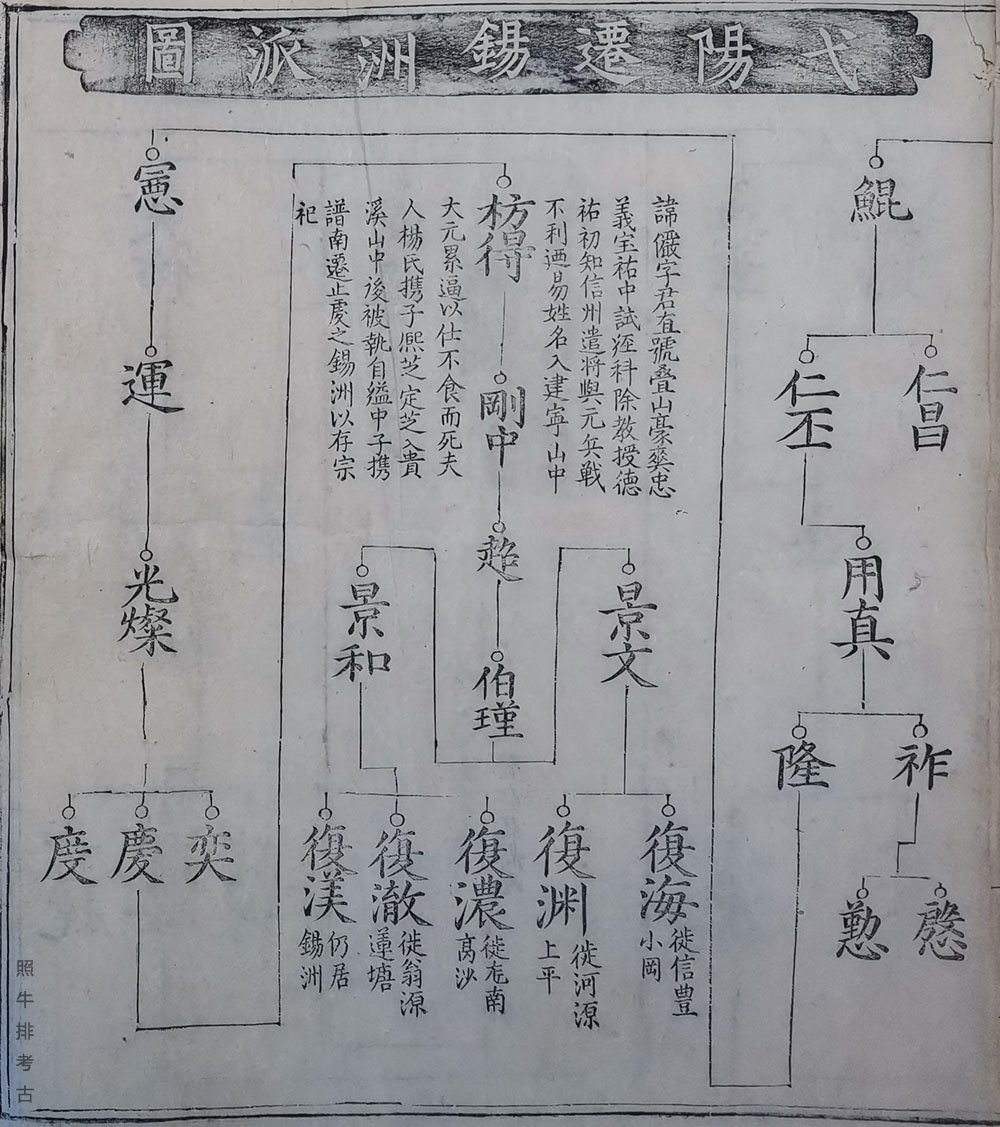 弋陽遷錫洲派圖
鯤
仁昌
仁丕
用真
祚
隆
慇
懃
憲
運
光燦
奕
慶
度
枋得
諱儼字君直號疊山豪爽忠
義宝祐中試經科除教授德
祐初知信州遣將與元兵戰
不利迺易姓名入建寧山中
大元累逼以仕不食而死夫
人楊氏携子熈芝定芝入貴
溪山中後被執自縊中子携
譜南遷止虔之錫洲以存宗
祀
剛中
超
伯瑾
景文
景和
復海
徙信豊
小岡
復渊
徙河源
上平
復濃
徙尨南
高沙
復澈
徙翁源
蓮塘
復渼
仍居
錫洲
照牛排考古